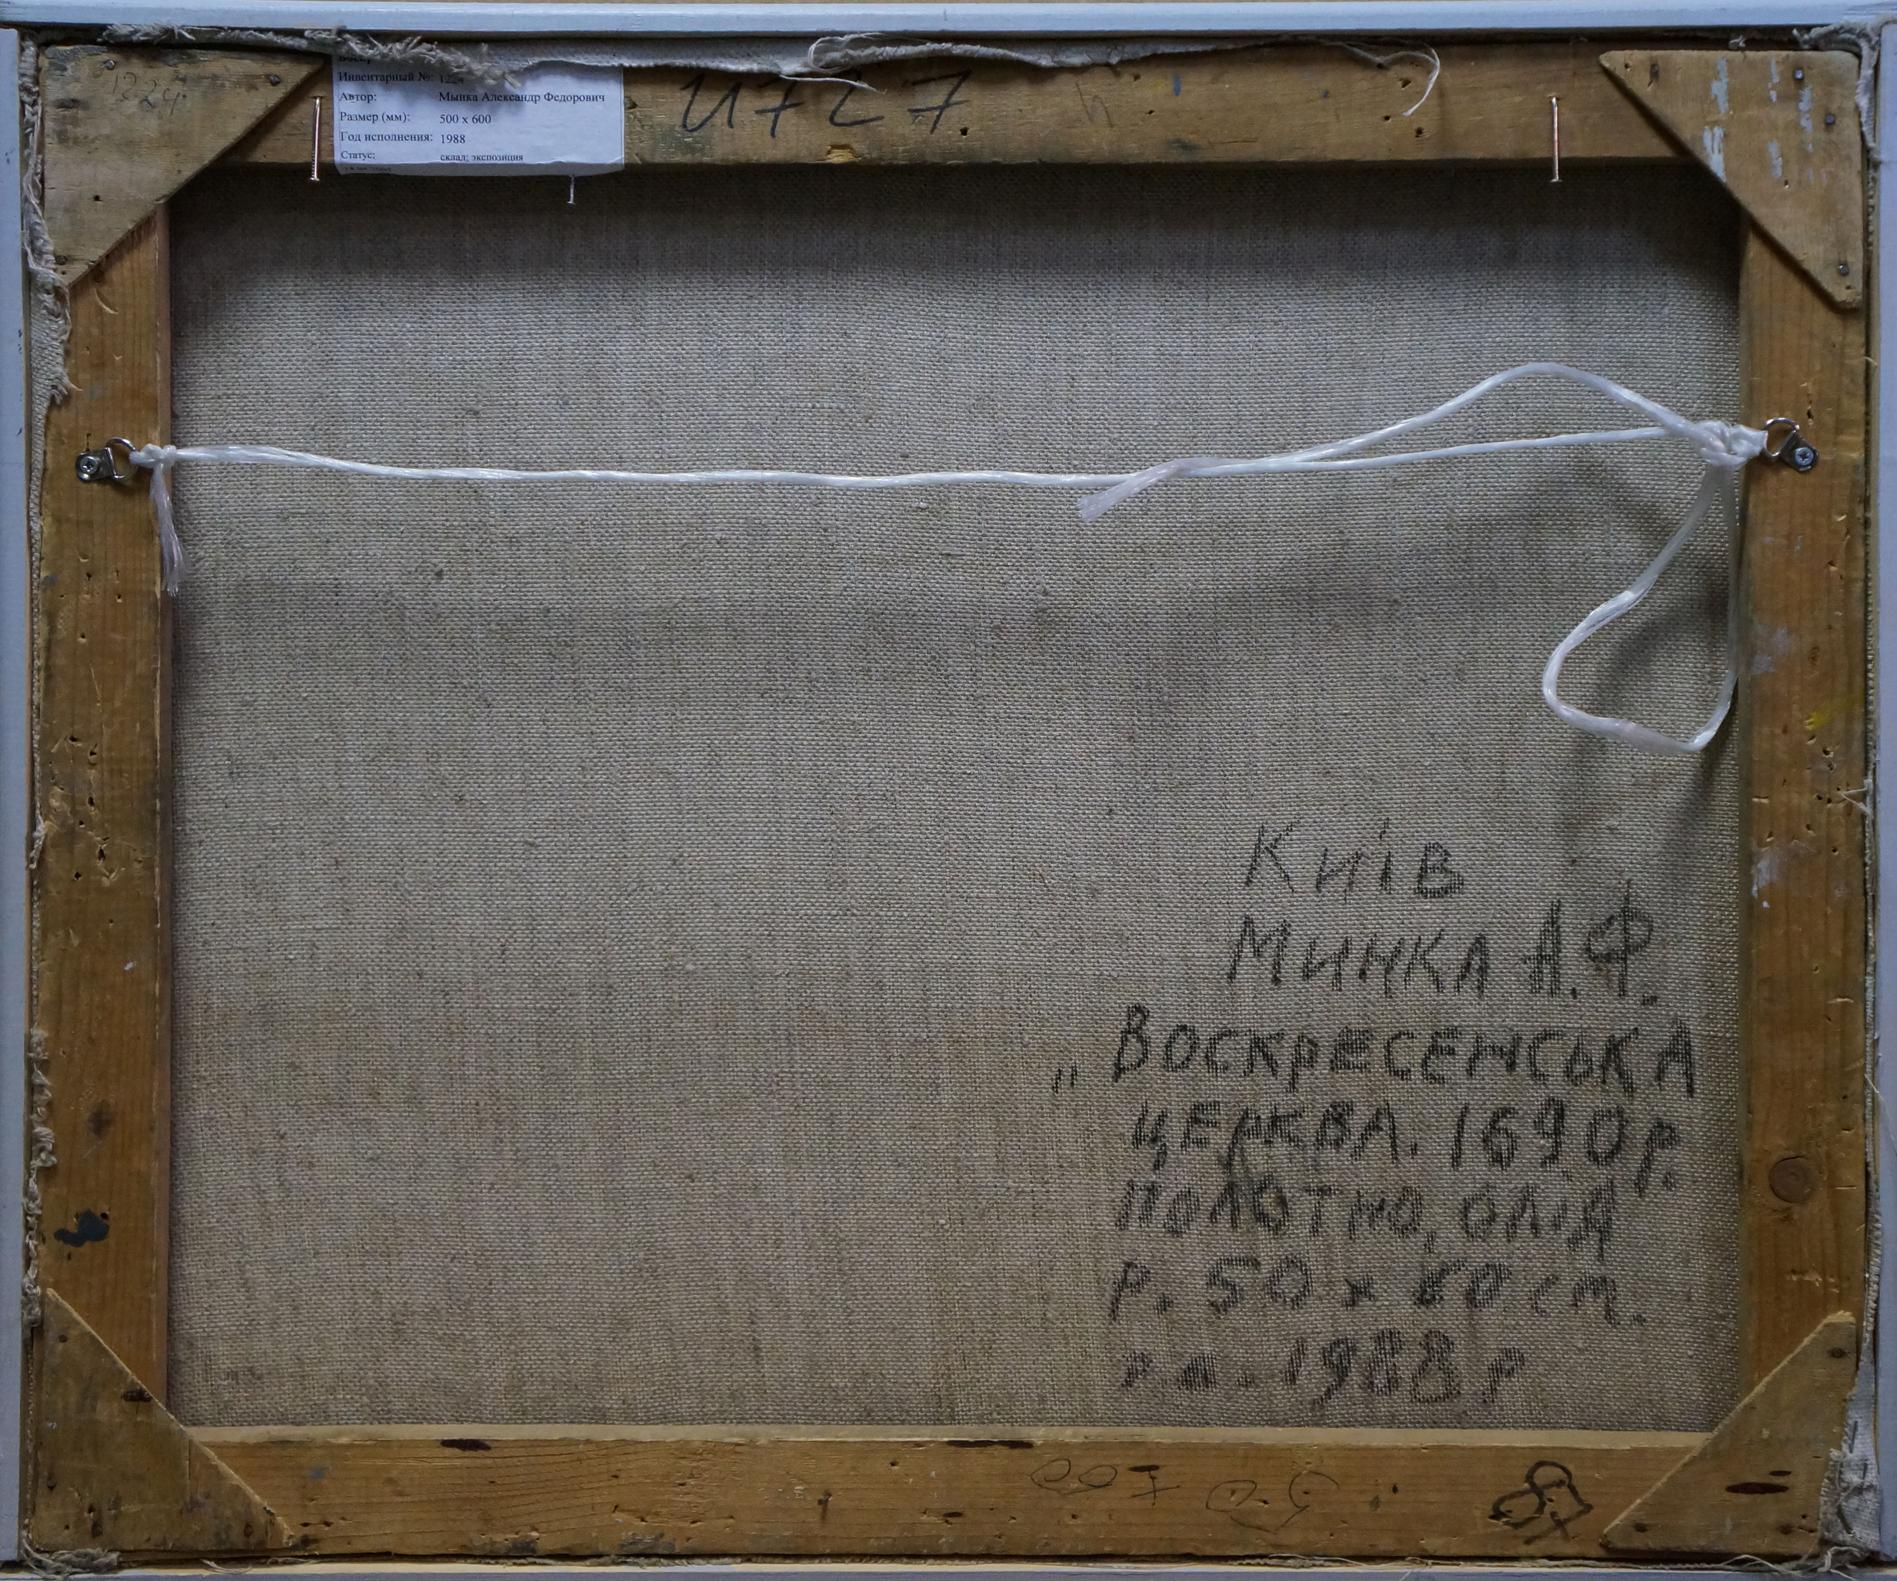 1224
Инвентарный №: 1224
Автор: Мынка Александр Федорович
Размер (мм): 500 x 600
Год исполнения: 1988
Статус: склад; экспозиция
И727
Київ
Минка А.Ф.
„Воскресенська
церква. 1690р.
полотно, олія
р. 50 x 60 см.
1988р